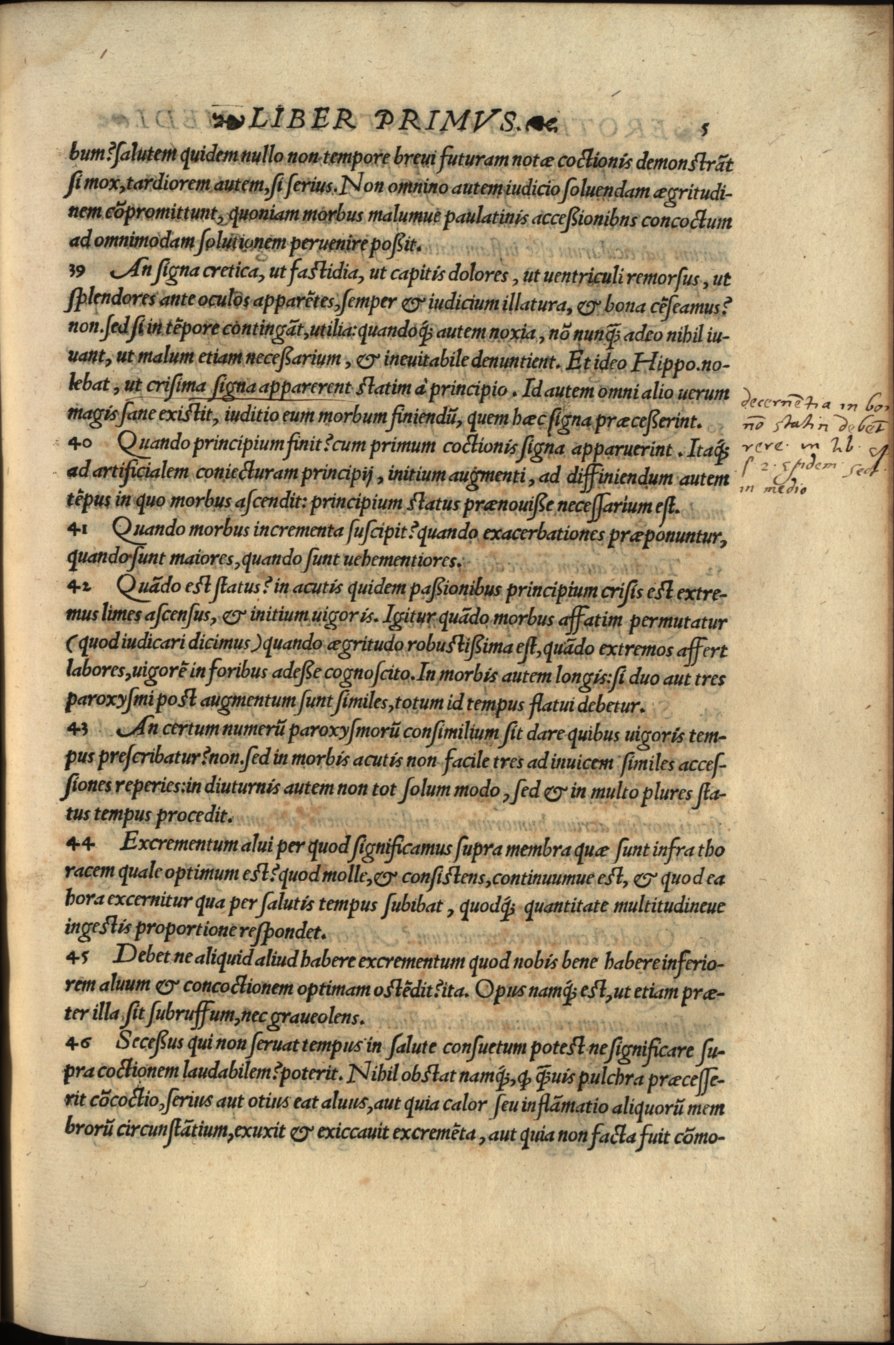 LIBER PRIMVS. 5
bum? salutem quidem nullo non tempore breui futuram notæ coctionis demonstrãt
si mox, tardiorem autem, si serius. Non omnino autem iudicio soluendam ægritudi-
nem cõpromittunt, quoniam morbus malumue paulatinis accessionibns concoctum
ad omnimodam solutionem peruenire possit.
39 An signa cretica, ut fastidia, ut capitis dolores, ut uentriculi remorsus, ut
splendores ante oculos apparẽtes, semper & iudicium illatura, & bona cẽseamus?
non. sed si in tẽpore contingãt, utilia: quandoq́; autem noxia, nõ nunq̃; adeo nihil iu-
uant, ut malum etiam necessarium, & ineuitabile denuntient. Et ideo Hippo. no-
lebat, ut crisima signa apparerent statim à principio. Id autem omni alio uerum
magis sane existit, iuditio eum morbum finiendũ, quem hæc signa præcesserint.
decernẽtia in bon
nõ statin debẽt
rere
in medio
40 Quando principium finit? cum primum coctionis signa apparuerint. Itaq́;
ad artificialem coniecturam principij, initium augmenti, ad diffiniendum autem
tẽpus in quo morbus ascendit: principium status prænouisse necessarium est.
41 Quando morbus incrementa suscipit? quando exacerbationes præponuntur,
quando sunt maiores, quando sunt uehementiores.
42 Quãdo est status? in acutis quidem passionibus principium crisis est extre-
mus limes ascensus, & initium uigoris. Igitur quãdo morbus affatim permutatur
(quod iudicari dicimus) quando ægritudo robustissima est, quãdo extremos affert
labores, uigorẽ in foribus adesse cognoscito. In morbis autem longis: si duo aut tres
paroxysmi post augmentum sunt similes, totum id tempus statui debetur.
43 An certum numerũ paroxysmorũ consimilium sit dare quibus uigoris tem-
pus prescribatur? non. sed in morbis acutis non facile tres ad inuicem similes acces-
siones reperies: in diuturnis autem non tot solum modo, sed & in multo plures sta-
tus tempus procedit.
44 Excrementum alui per quod significamus supra membra quæ sunt infra tho
racem quale optimum est? quod molle, & consistens, continuumue est, & quod ea
hora excernitur qua per salutis tempus subibat, quodq́; quantitate multitudineue
ingestis proportione respondet.
45 Debet ne aliquid aliud habere excrementum quod nobis bene habere inferio-
rem aluum & concoctionem optimam ostẽdit? ita. Opus namq́; est, ut etiam præ-
ter illa sit subruffum, nec graueolens.
46 Secessus qui non seruat tempus in salute consuetum potest ne significare su-
pra coctionem laudabilem? poterit. Nihil obstat namq́;, q̧ q̃uis pulchra præcesse-
rit cõcoctio, serius aut otius eat aluus, aut quia calor seu inflãmatio aliquorũ mem
brorũ circunstãtium, exuxit & exiccauit excremẽta, aut quia non facta fuit cõmo-